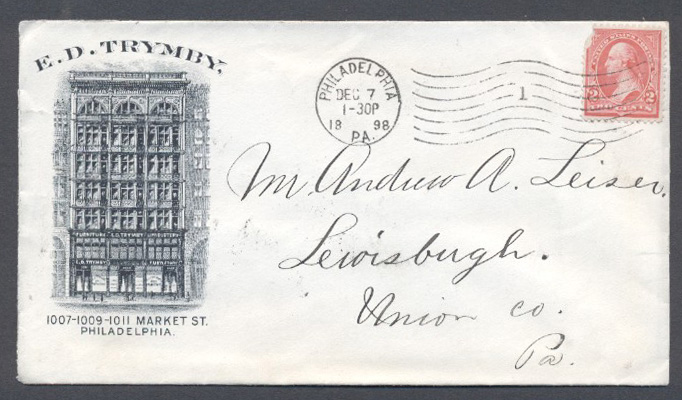 E. D. TRYMBY.
FURNITURE E.D. TRYMBY
E. D. TRYMBY FURNITURE
1007-1009-1011 MARKET ST.
PHILADELPHIA.
PHILADELPHIA
DEC 7
1-30P
18 98
PA.
1
2 2
TWO CENTS
Mr Andrew A. Leiser,
Lewisburgh.
Union Co.
Pa.